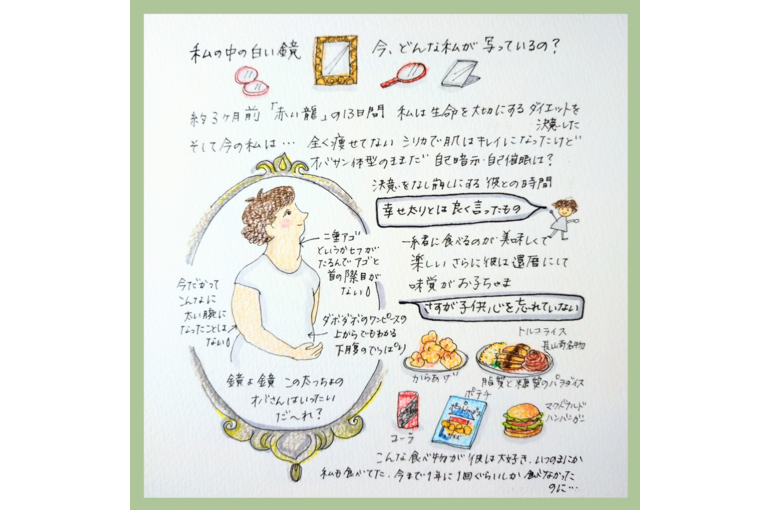 私の中の白い鏡
今、どんな私が写っているの?
約3ヶ月前「赤い龍」の13日間 私は生命を大切にするダイエットを
決意した
そして今の私は… 全く痩せてない シリカで肌はキレイになったけど
オバサン体型のままだ 自己暗示・自己催眠は?
決意をなし崩しにする彼との時間
幸せ太りとは良く言ったもの
一緒に食べるのが美味しくて
楽しい さらに彼は還暦にして
味覚がお子ちゃま
さすが子供心を忘れていない
二重アゴ
というかセフが
たるんでアゴと
首の際目が
ない
今だかつて
こんなに
太い腕に
なったことは
ない
ダボダボのワンピースの
上からでもわかる
下腹のでっぱり
鏡よ鏡 この太っちょの
オバさんはいったい
だ〜れ?
からあげ
トルコライス
長崎名物
脂質と糖質のパラダイス
コーラ
ポテチ
マクドナルド
ハンバーガー
こんな食べ物が彼は大好き、いつのまにか
私も食べてた、今まで1年に1回ぐらいしか食べなかった
のに…